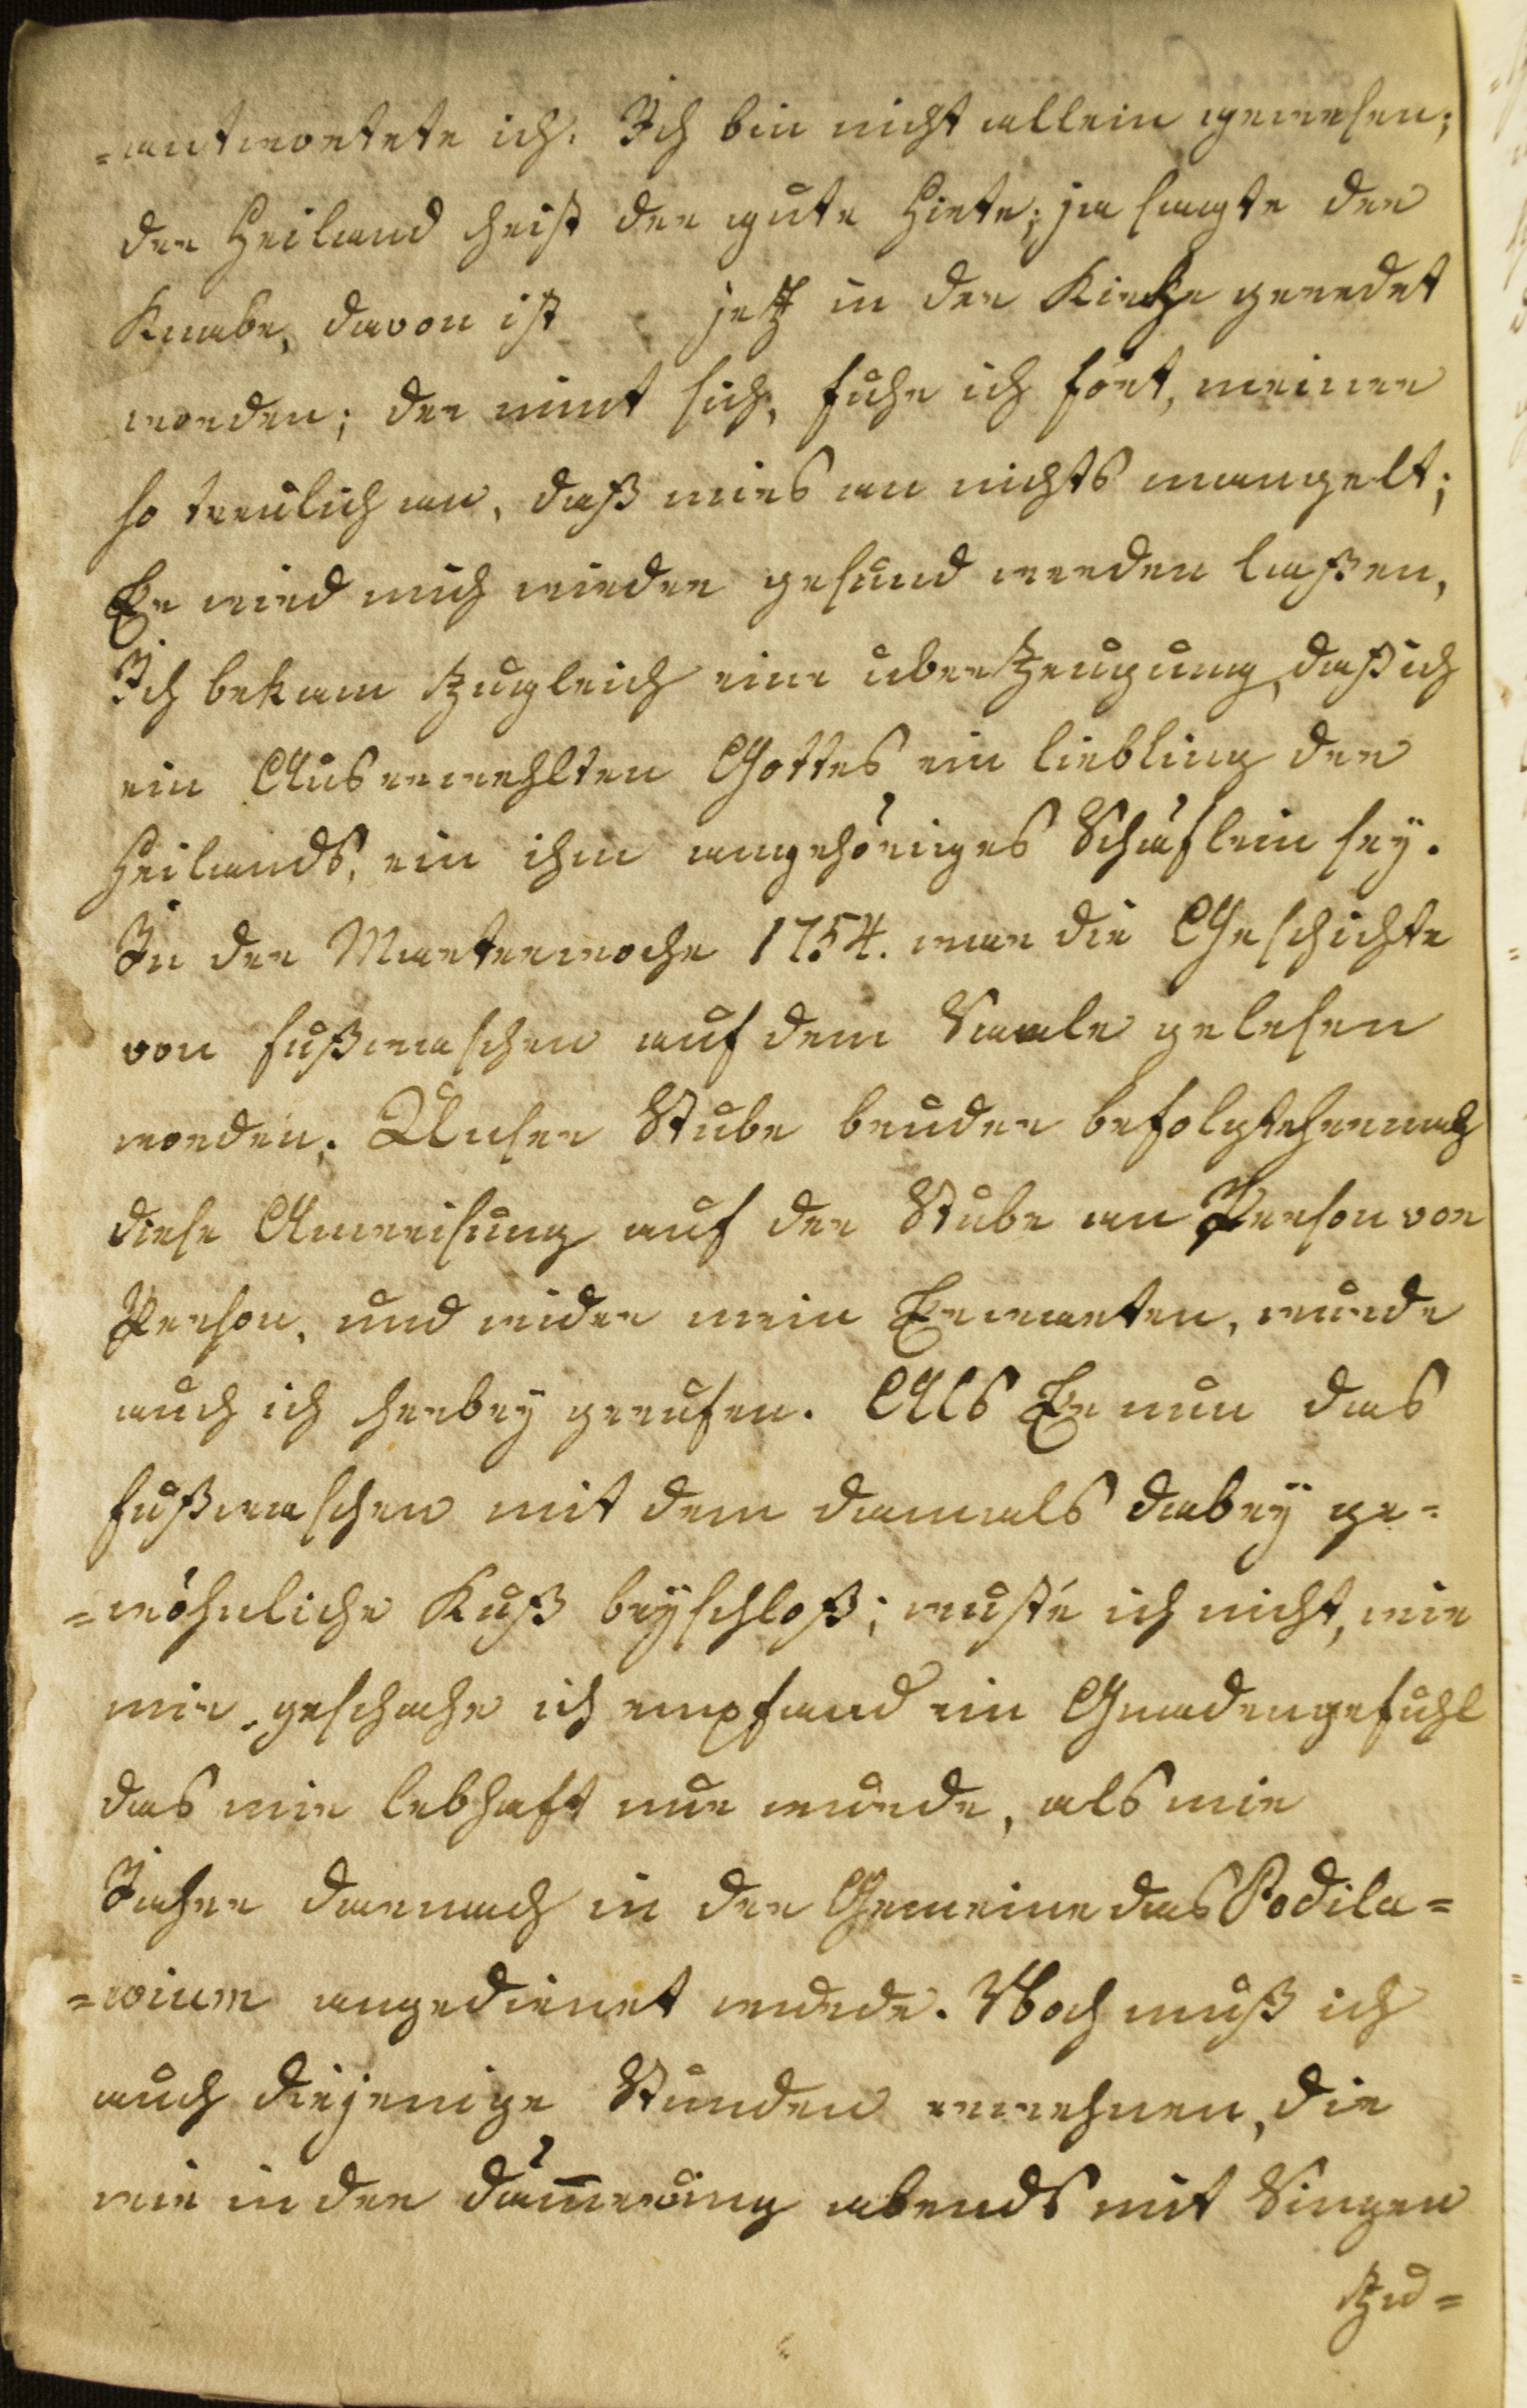 =antwortete ich. Ich bin nicht allein gewesen;
der Heiland heist der gute Hirte; ja sagte der
Knabe, davon ist jetz in der Kirche geredet
worden; der nimt sich, fuhr ich fort, meiner
so treulich an, daß mirs an nichts mangelt;
Er wird mich wieder gesund werden laßen,
Ich bekam zugleich eine uberzeugung, daß ich
ein Auserwehlten Gottes ein liebling der
Heilands, ein ihm angehöriges Schäflein sey.
In der Marterwoche 1754. war die Geschichte
von fußwaschen auf dem Saale gelesen
worden. Unser Stube bruder befolgte hernach
diese Anweisung auf der Stube an Person vor
Person, und wider mein Erwarten, wurde
auch ich herbey gerufen. Als Er nun das
fußwaschen mit dem damals dabey ge=
=wöhnliche Kuß beyschloß; wuste ich nicht, wie
mir geschahe ich empfand ein Gnadengefuhl
das mir lebhaft nur wurde, als mir
Jahre darnach in der Gemeine das Pedila=
=wium angedienet wurde. Noch muß ich
auch diejenige Stunden erwehnen, die
wir in der dämerung abends mit Singen
zu=